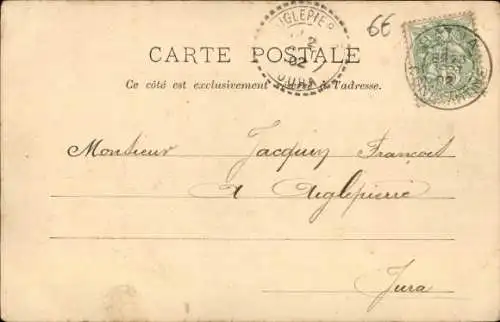 6€
AIGLEPIERRE
2
02
JURA
CARTE POSTALE
Ce côté est exclusivement réservé à l'adresse.
Monsieur Jacquin François
à Aiglepierre
Jura